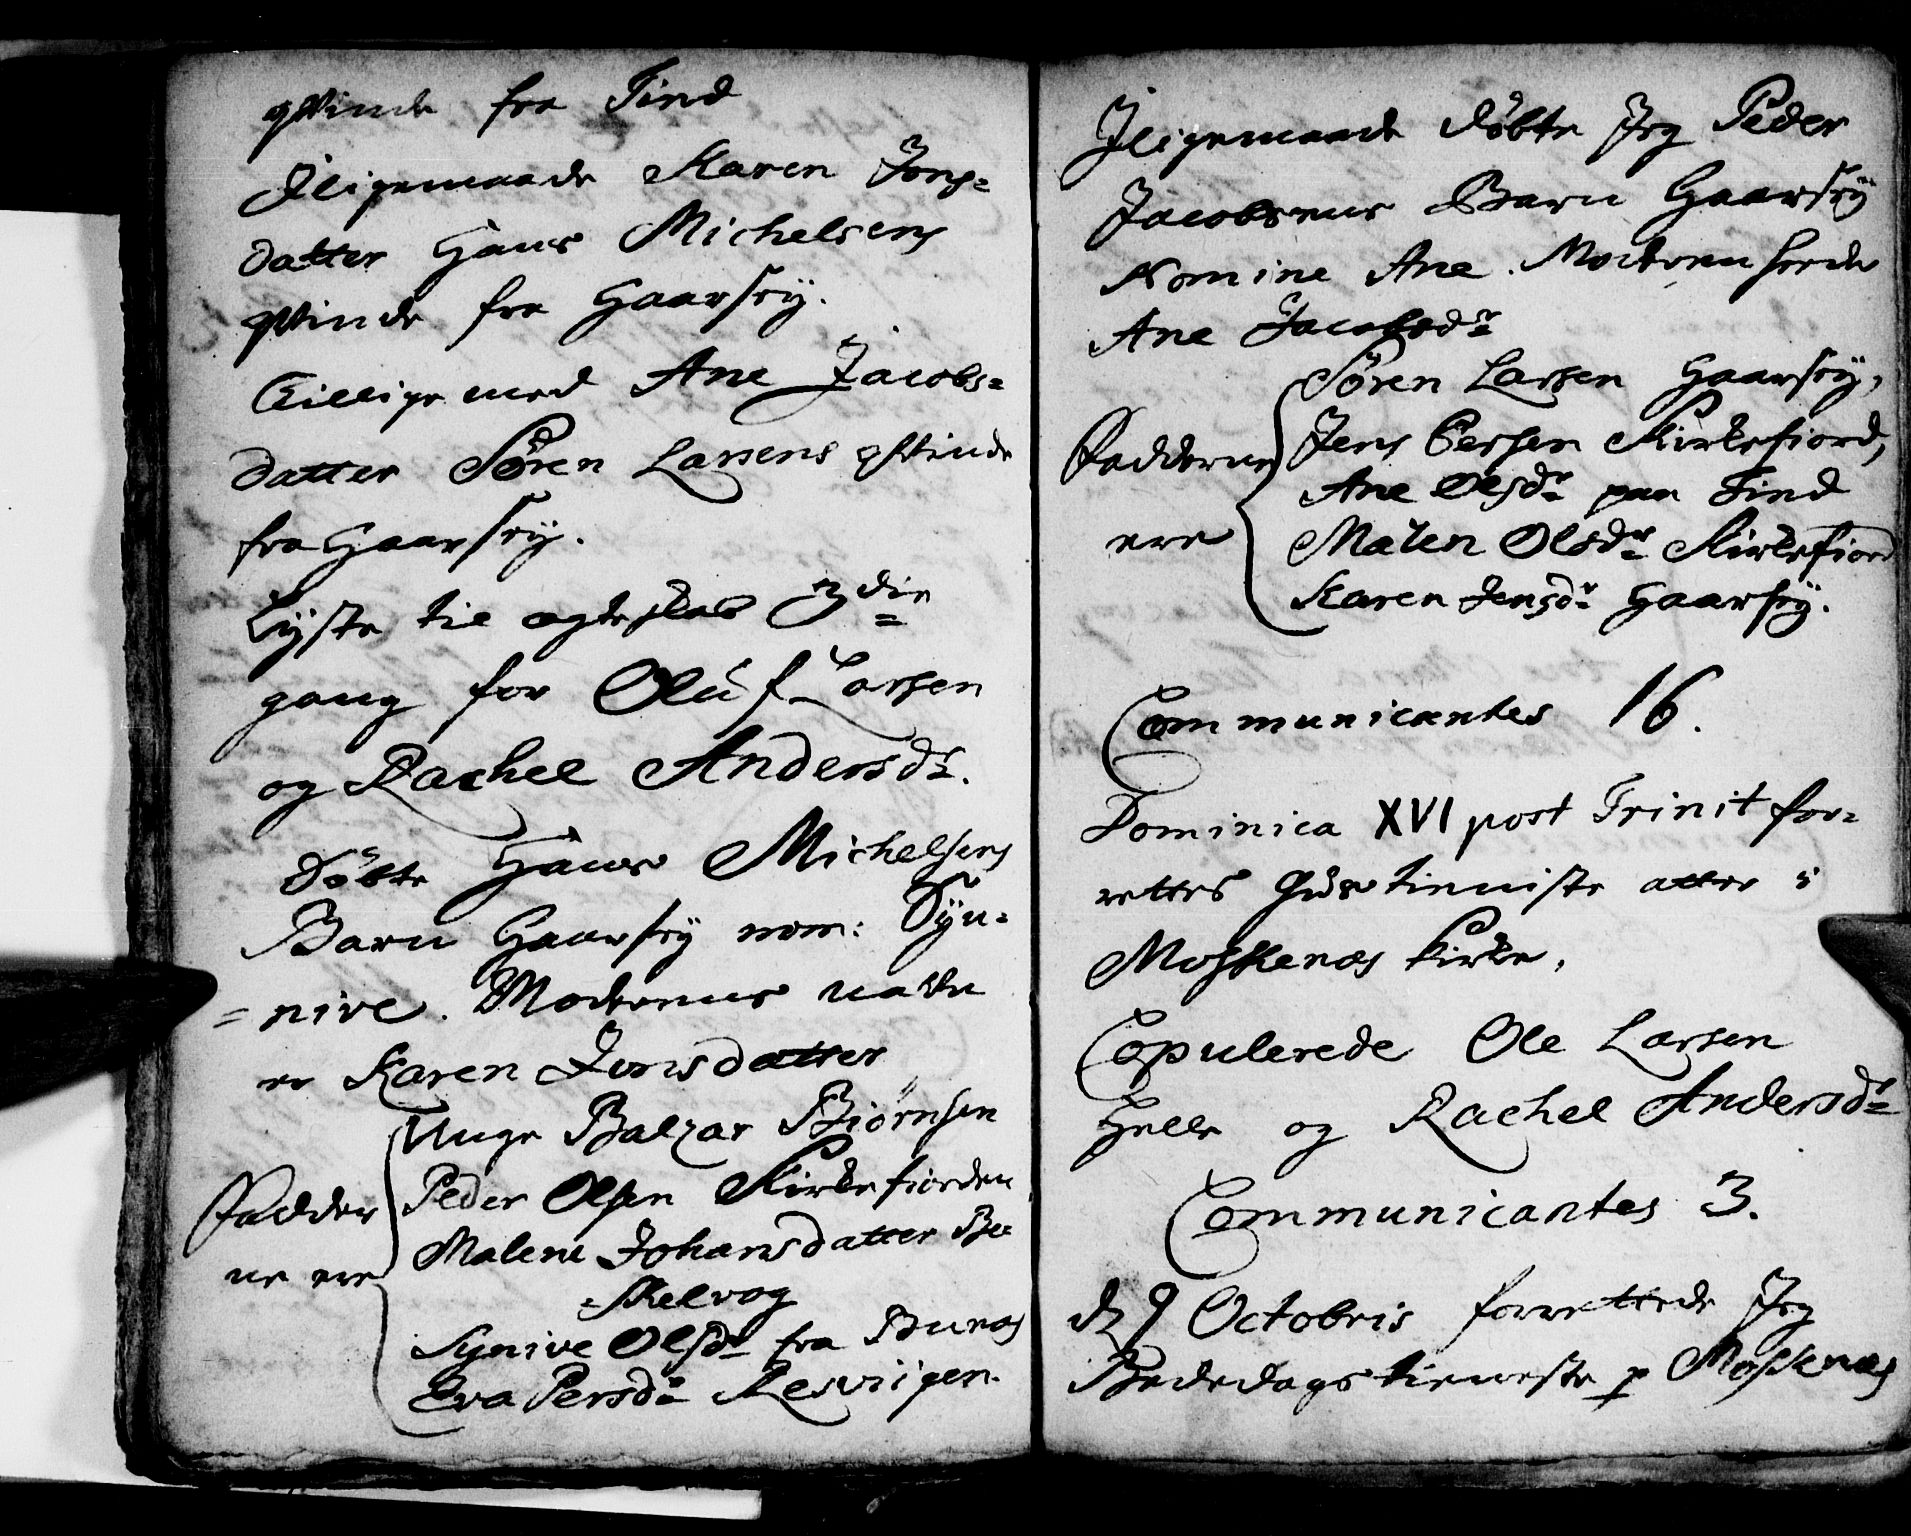 qvinde fra Tind
Jligemaade Karen Jons=
datter Hans Michelsens
qvinde fra Gaarsøy.
Tillige med Ane Jacobs=
datter Sören Larsens qvinde
fra Gaarsøy.
Lyste til ægteskab 3die
gang for Oluf Larsen
og Rachel Andersdr.
Döbte Hans Michelsens
Barn Gaarsøy nom: Syn=
=nive. Moderens nafn
er Karen Jonsdatter
Unge Balzar Biörnsen
Peder Olsen Kirkefiorden
Fadder
Malene Johansdatter Be
ne ere
=Skelvog
Synive Olsdr fra Bunæs
Eva Persdr Resviigen.
Jligemaade döbte Jeg Peder
Jacobsens Barn Gaarsøy
Nomine Ane. Moderen heeder
Ane Jacobsdr
Sören Larsen Gaarsøy,
Fadderne Jens Persen Kirkefiord,
Ane Olsdr paa Tind
ere Malen Olsdr Kirkefiord
Karen Jensdr Gaarsøy.
Communicantes 16.
Dominica XVI post Trinit for=
rettes Gudstieniste atter i
Moskenæs Kirke,
Copulerede Ole Larsen
Helle og Rachel Andersdr
Communicantes 3.
d 9 Octobris forrettede Jeg
Bededagstieneste p Moskenæs